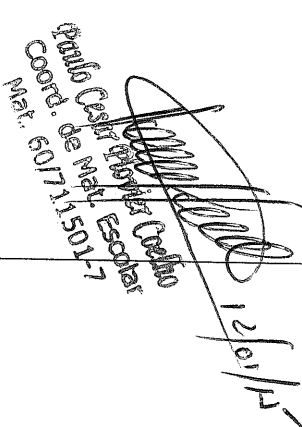 Paulo Cesar Coelho
Coord. de Mat. Escolar
Mat. 60/711501-7
12/01/15